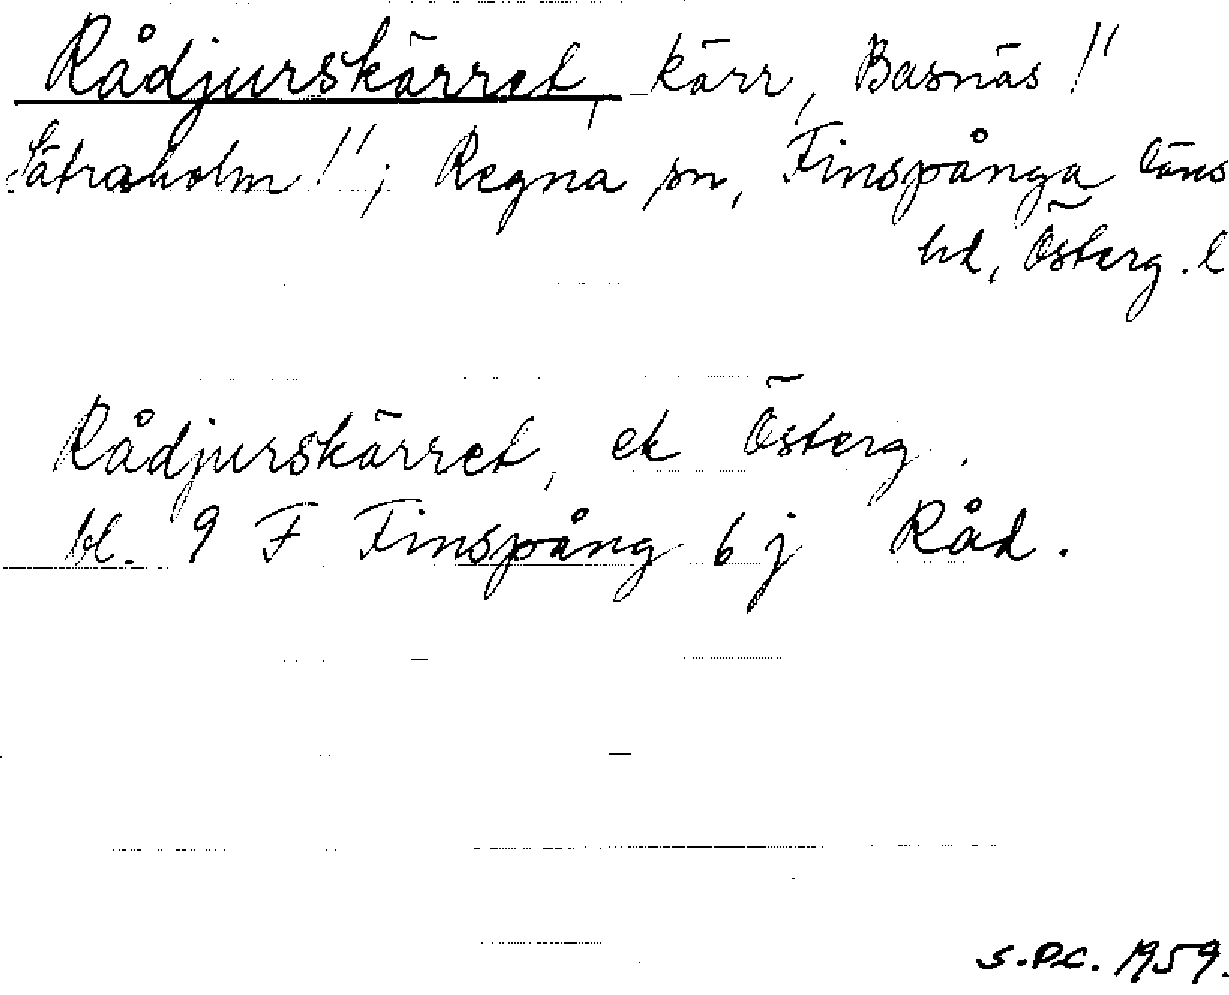 Rådjurskärret, kärr, Basnäs !'
Sätraholm !'; Regna sn, Finspånga läns
hd, Österg. l
Rådjurskärret, ek Österg.
bl. 9 F Finspång 6 j Råd.
S.P.C. 1959.